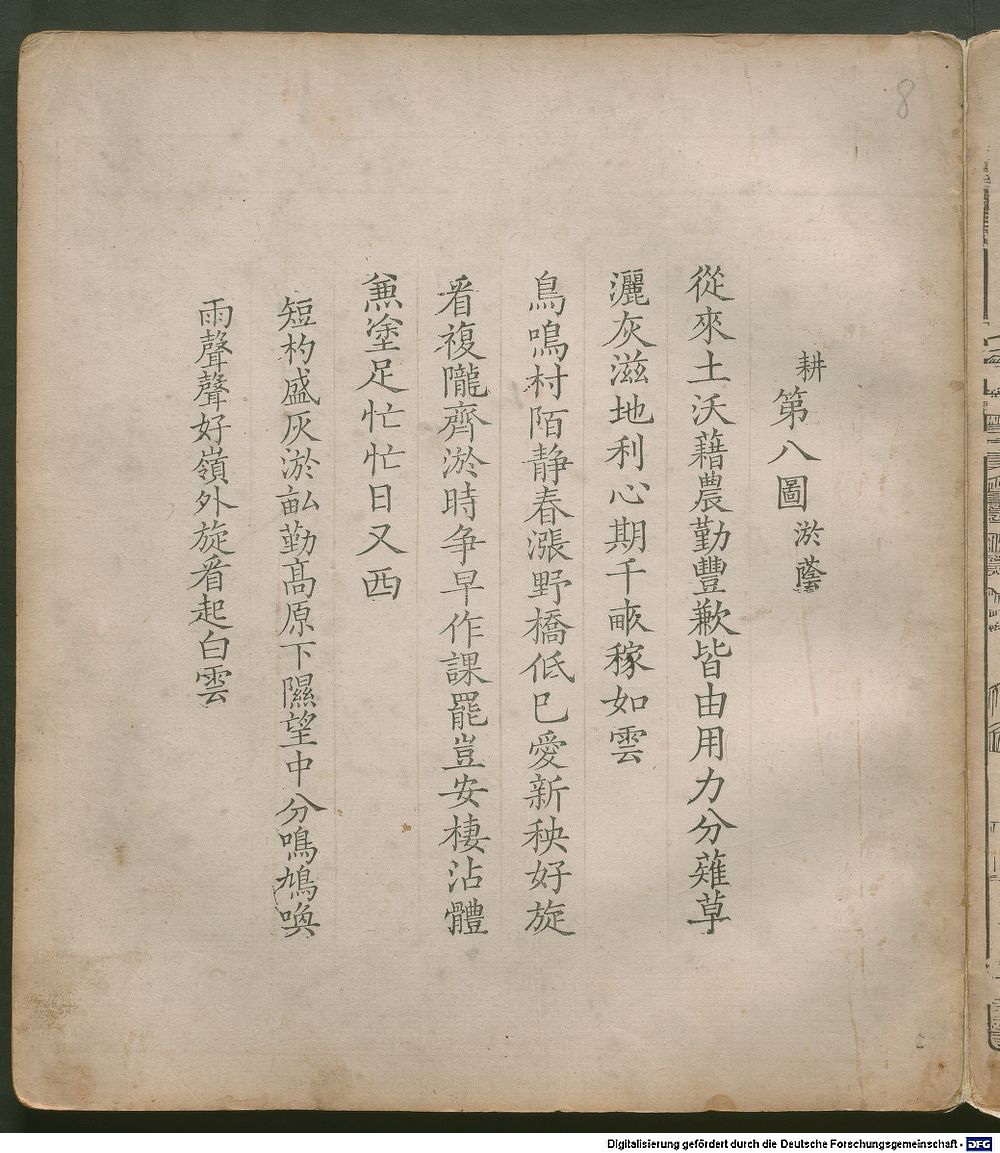 8
耕第八圖淤蔭
從來土沃藉農勤豐歉皆由用力分薙草
灑灰滋地利心期千畞稼如雲
鳥鳴村陌静春漲野橋低已愛新秧好旋
看複隴齊淤時争早作課罷豈安棲沾體
兼塗足忙忙日又西
短杓盛灰淤畝勤高原下隰望中分鳴鳩喚
雨聲聲好嶺外旋看起白雲
Digitalisierung gefördert durch die Deutsche Forschungsgemeinschaft - DFG